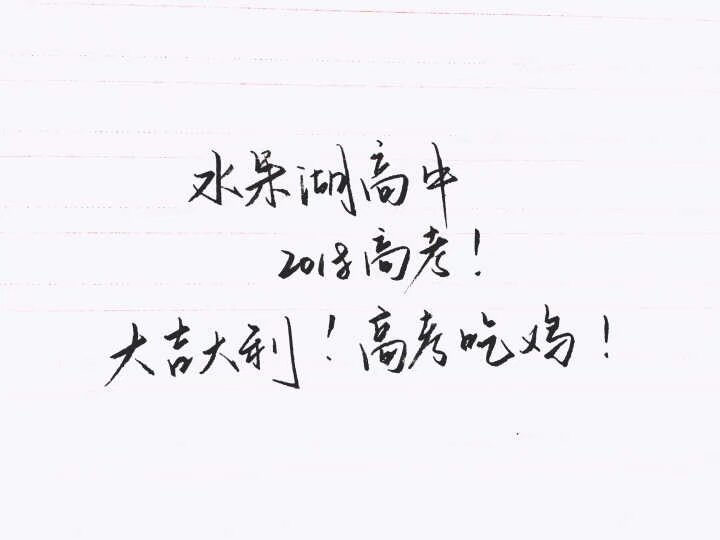 水果湖高中
2018高考!
大吉大利!高考吃鸡!